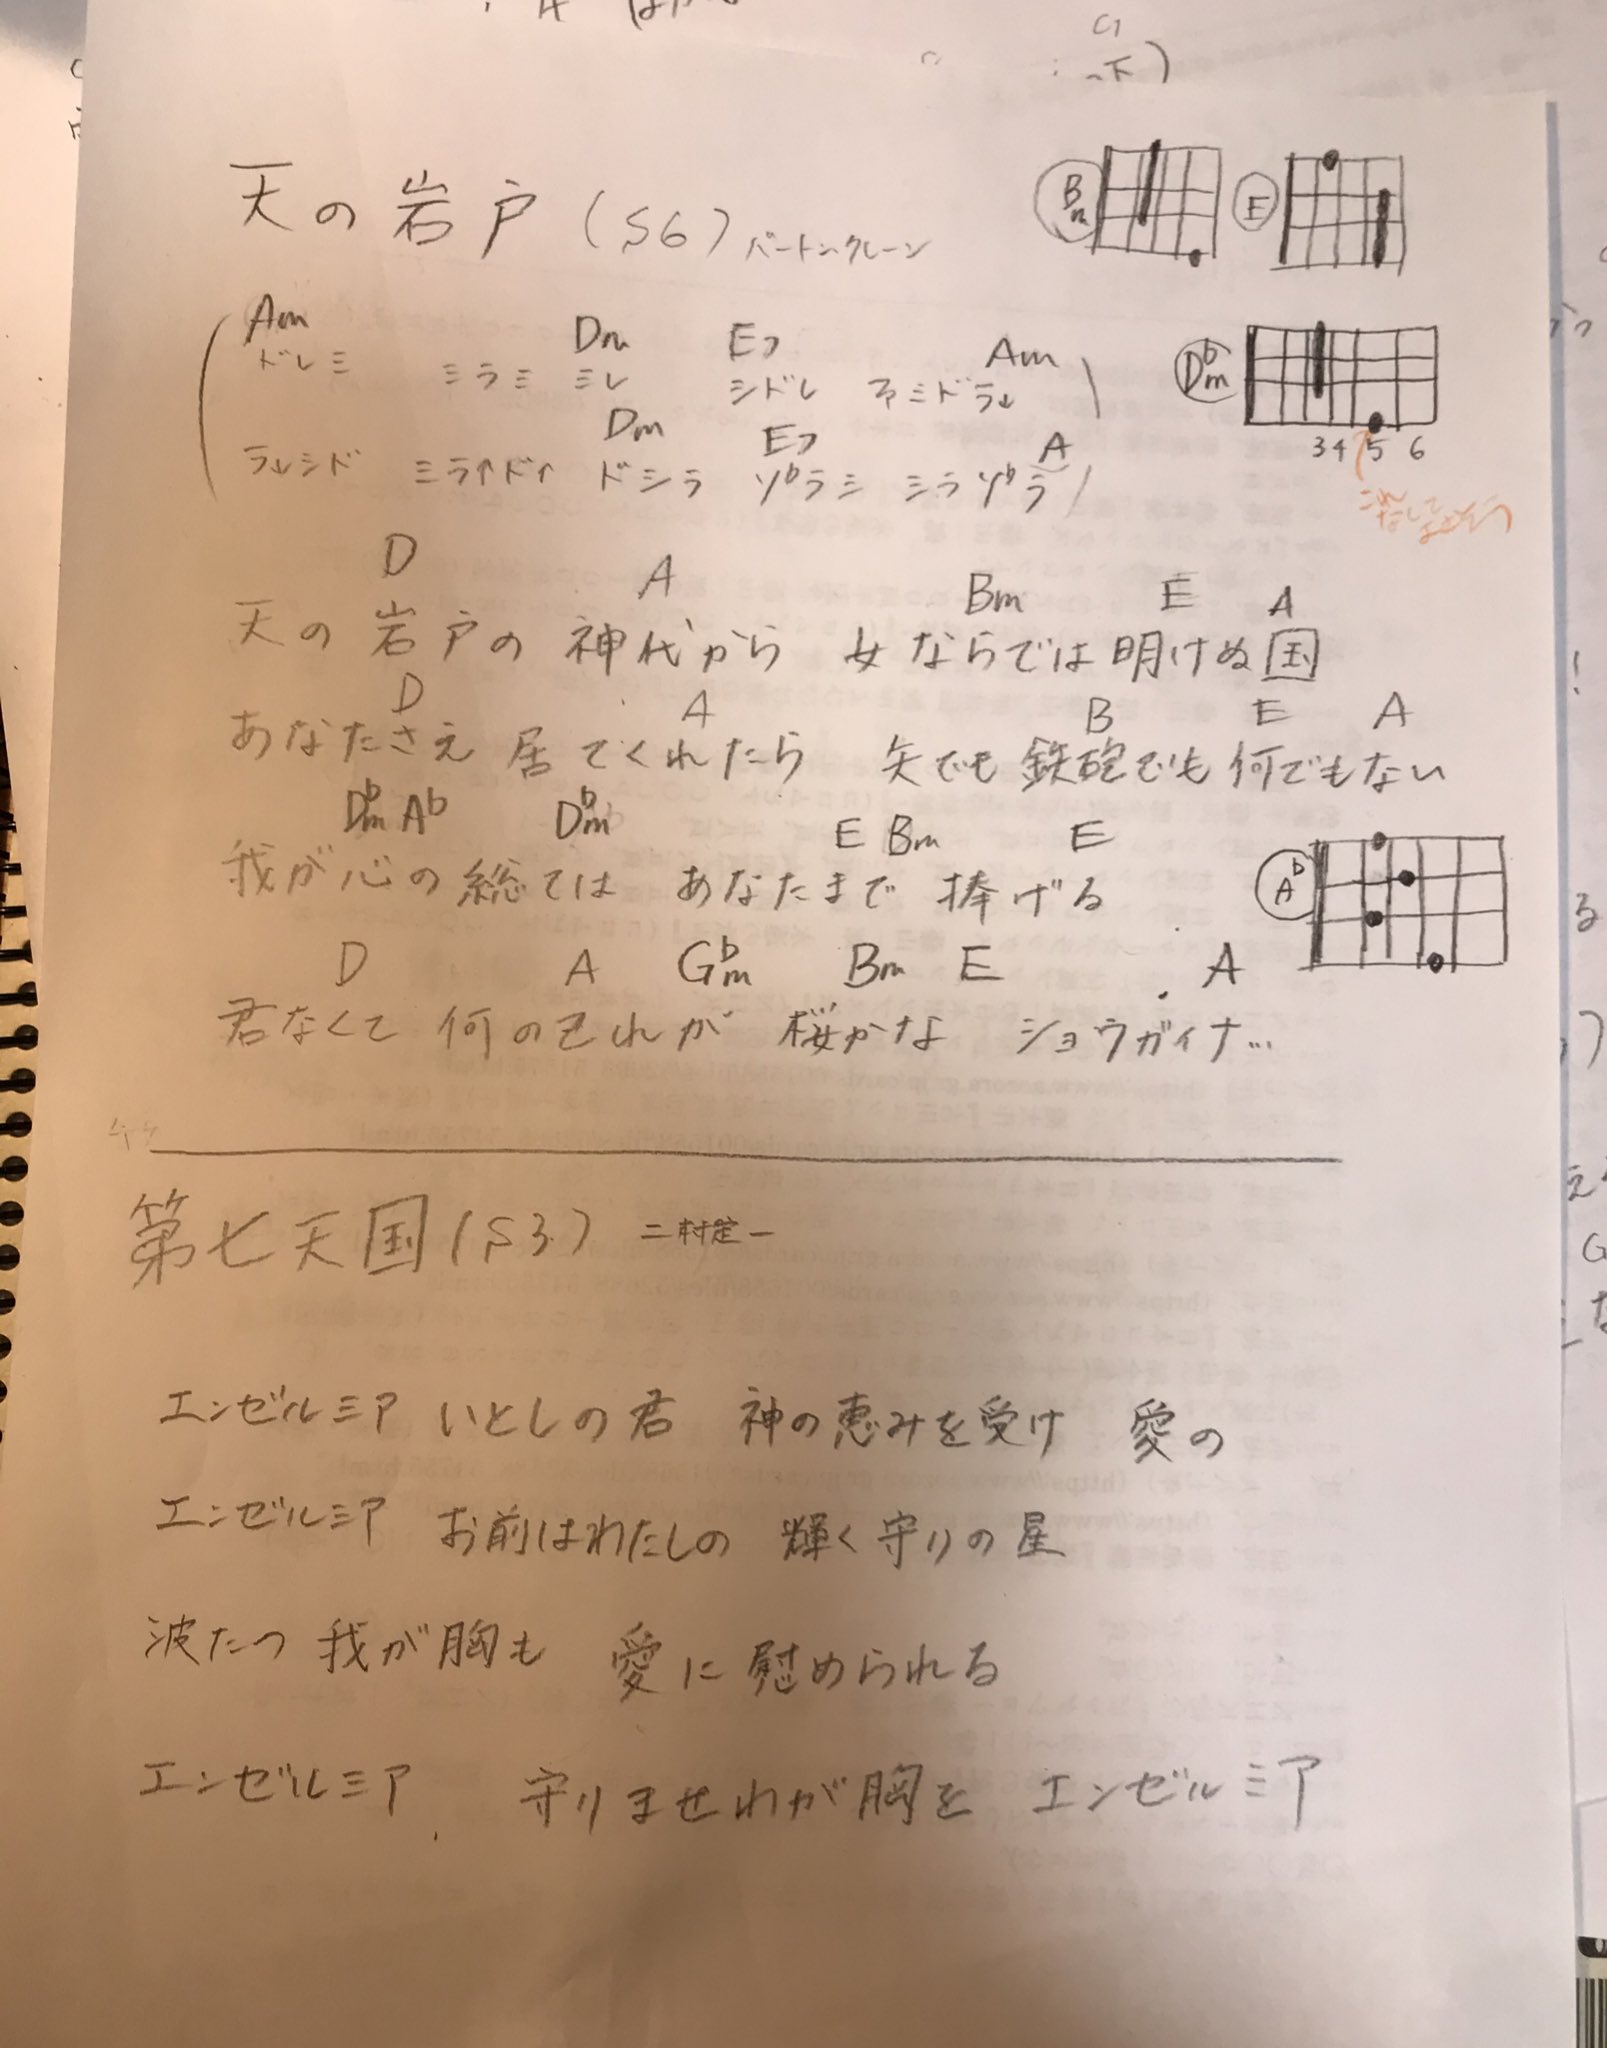 天の岩戸(S6) バートン・クレーン
Bm E
Am Dm E7 Am
ドレミ ミラミ ミレ シドレ ファミドラ↓
Dm E7 A
ラ↓シド ミラ↑ド↑ ドシラ ソ♭ラシ ミラソ♭ラ
D♭m
3 4 5 6
D A Bm E A
天の岩戸の神代から 女ならでは明けぬ国
D A B E A
あなたさえ居てくれたら 矢でも鉄砲でも何でもない
D♭m A♭ D♭m E Bm E
我が心の総ては あなたまで捧げる
A♭
D A G♭m Bm E A
君なくて 何の己れが 桜かな ショウガイナ…
第七天国(S3) 二村定一
エンゼルミア いとしの君 神の恵みを受け 愛の
エンゼルミア お前はわたしの 輝く守りの星
波たつ 我が胸も 愛に慰められる
エンゼルミア 守りませわが胸を エンゼルミア